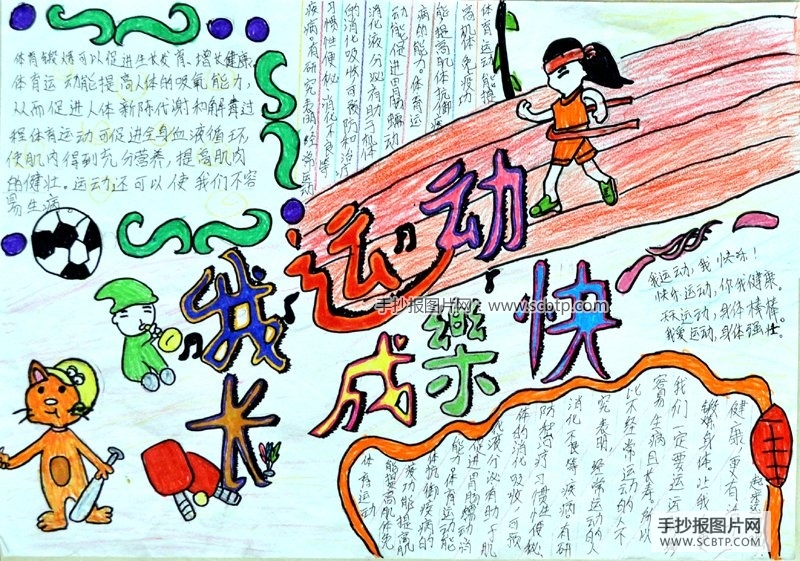 体育锻炼可以促进生长发育、增长健康
体育运动能提高人体的吸氧能力,
从而促进人体新陈代谢和解毒过
程体育运动可促进全身血液循环,
使肌肉得到充分营养,提高肌肉
的健壮。运动还可以使我们不容
易生病
体育运动能提
高机体免疫功
能提高肌体抗御疾
病的能力。体育运
动能促进胃肠蠕动
消化液分泌有助于肌体
的消化吸收可预防和治疗
习惯性便秘消化不良等
疾病有研究表明经常运动
我运动
成长
快樂
我运动,我快乐!
快乐运动,你我健康。
运动,身体棒棒。
我爱运动,身体强壮。
健康,更有
锻炼身体,让我
我们一定要运运
容易生病且长寿,所以
比不经常运动的人不
究表明,经常运动的人
消化不良等疾病有研
防和治疗习惯性便秘
体的消化吸收,可预
化液分泌有助于肌
促进胃肠蠕动消
能。体育运动能
体抗御疾病的
疫功能提高肌
能提高肌体免
体育运动
手抄报图片网:www.scbtp.com
手抄报图片网
WWW.SCBTP.COM